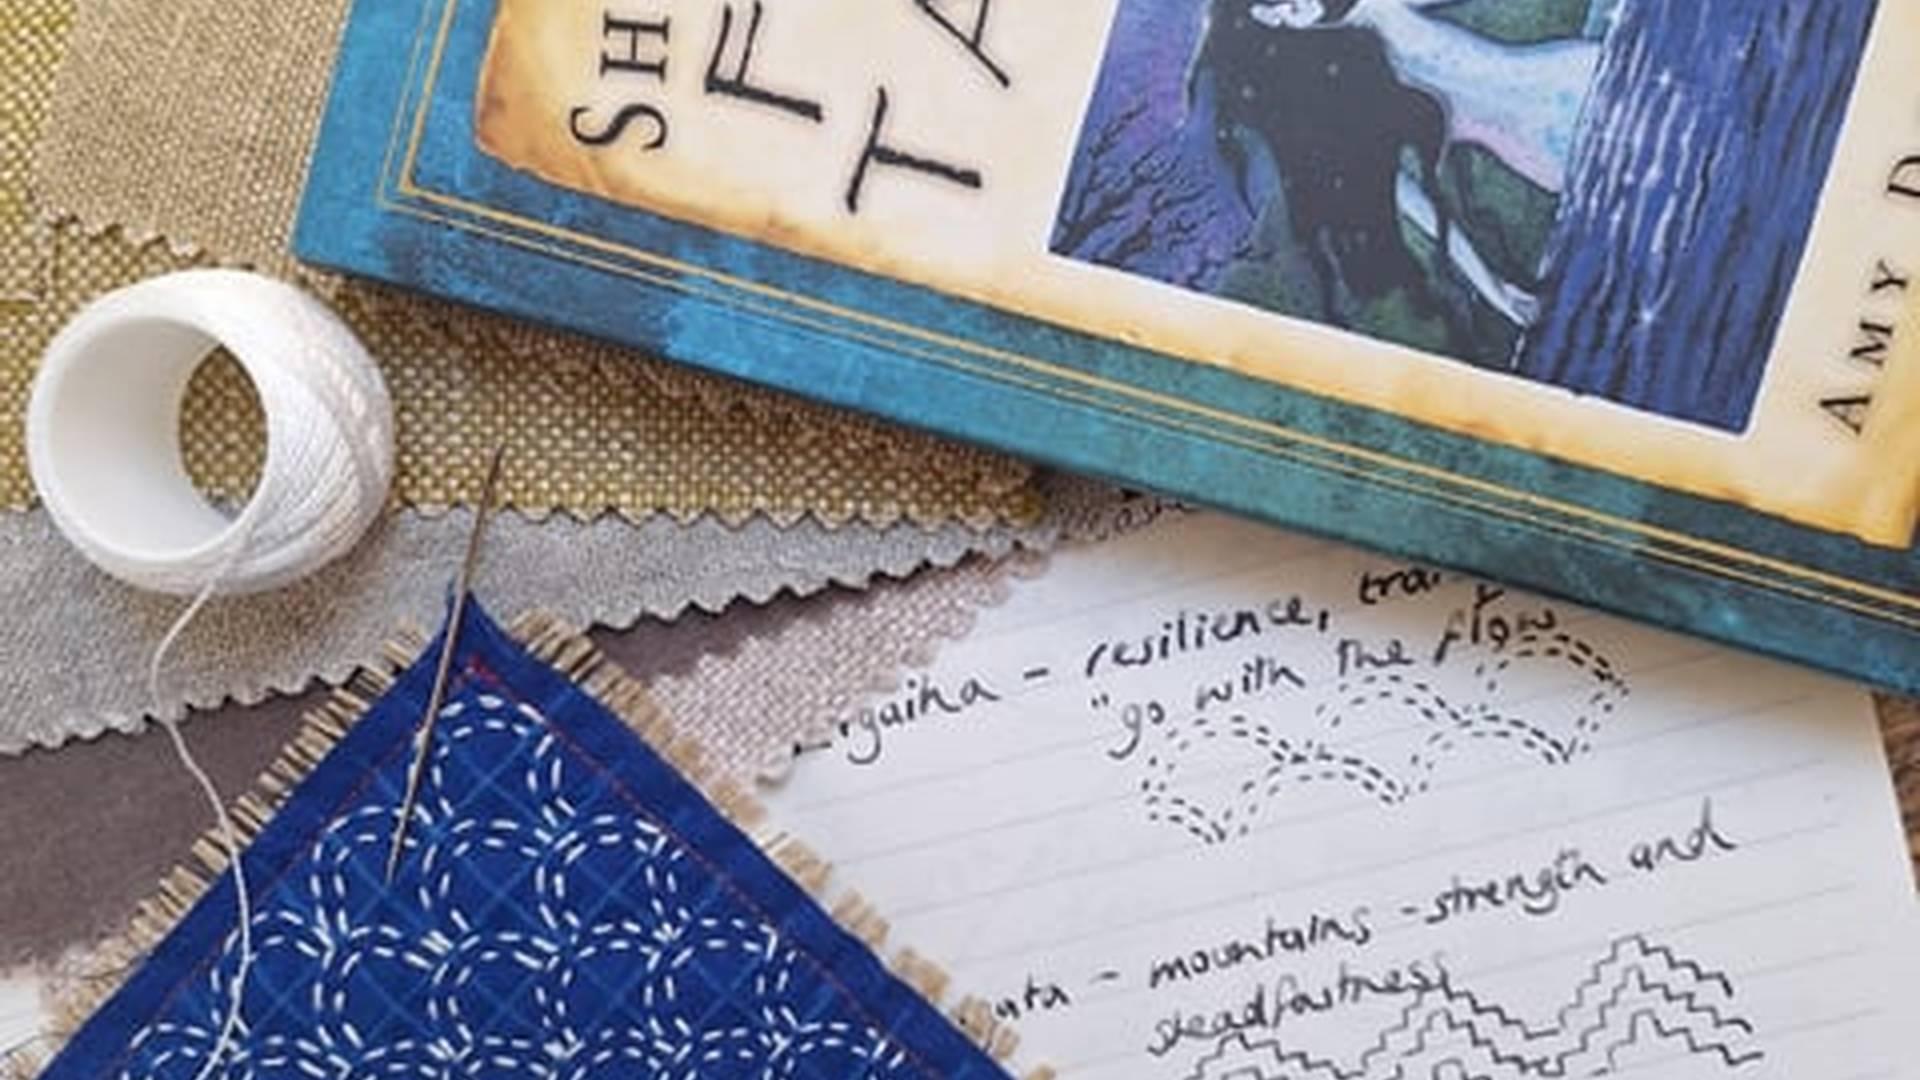 SH
F
TA
AMY D
igaiha - resilience, tra
"go with the flow
uta - mountains - strength and
steadfastness